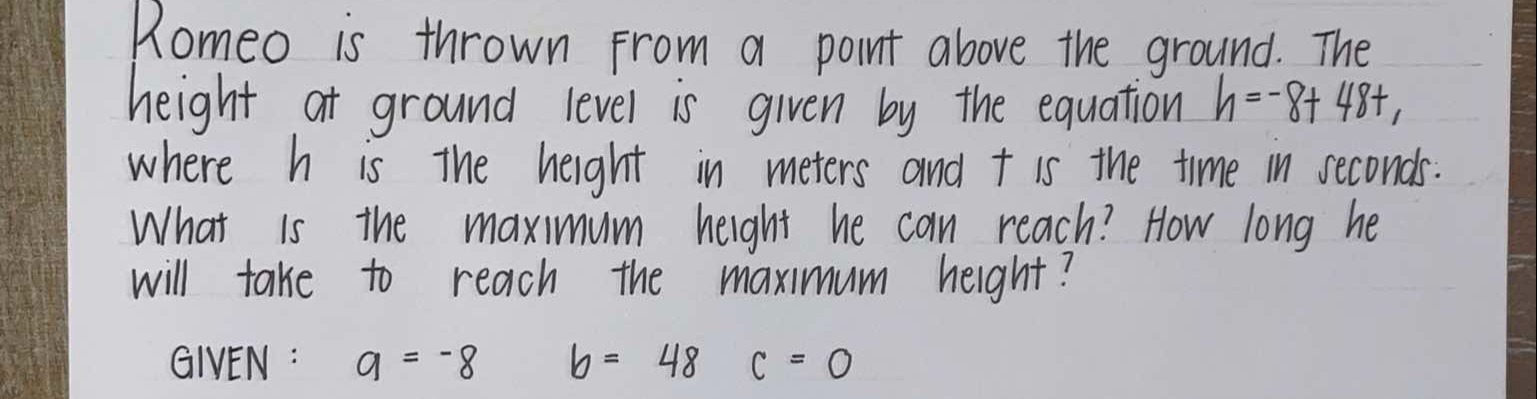 Romeo is thrown from a point above the ground. The
height at ground level is given by the equation h=-8t 48t,
where h is the height in meters and t is the time in seconds.
What is the maximum height he can reach? How long he
will take to reach the maximum height?
GIVEN : a = -8 b = 48 c = 0